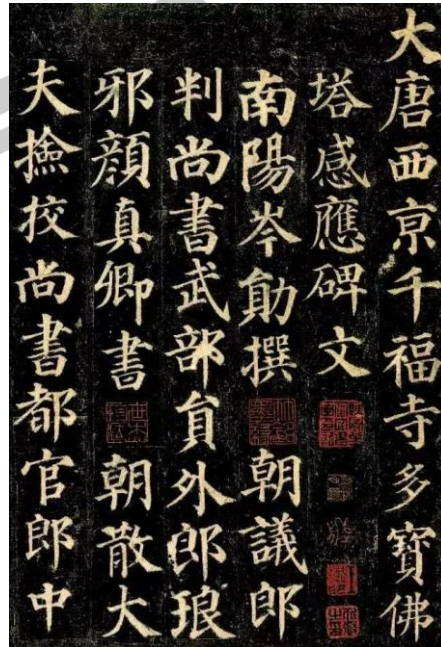 大唐西京千福寺多寶佛
塔感應碑文
南陽岑勛撰 朝議郎
判尚書武部負外郎琅
邪顏真卿書 朝散大
夫撿挍尚書都官郎中